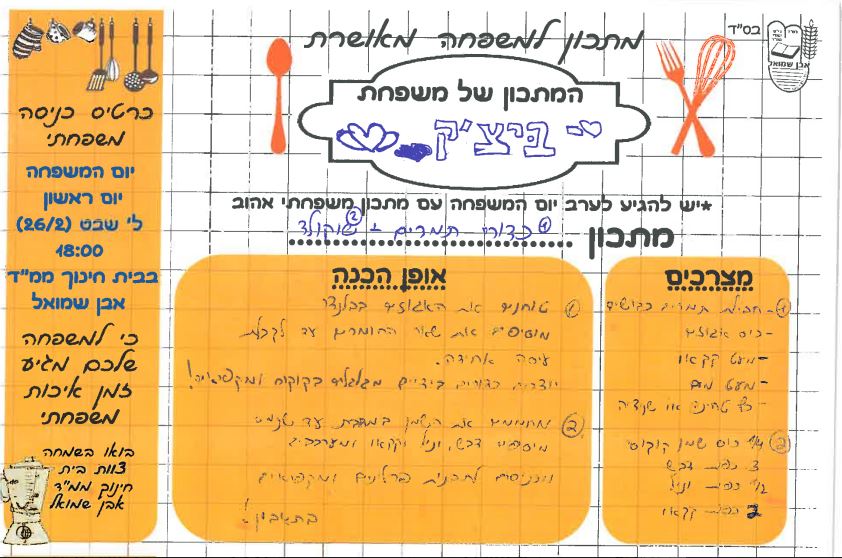 בס"ד
אבן שמואל
מתכון למשפחה מאושרת
המתכון של משפחת
ביצ'ק
*יש להגיע לערב יום המשפחה עם מתכון משפחתי אהוב
מתכון ① כדורי תמרים + ② שוקולד
מצרכים
① - חבילת תמרים כבושים
- כוס אגוזים
- מעט קקאו
- מעט מים
טחינה או
② 1/4 כוס שמן קוקוס
3 כפות דבש
1/2 כפית וניל
2 כפות קקאו
אופן הכנה
① טוחנים את האגוזים בבלנדר
מוסיפים את שאר החומרים עד לקבלת
עיסה אחידה.
יוצרים כדורים בידיים מגלגלים בקוקוס ומקפיאים!
② מחממים את השמן במחבת עד שנמס
מוסיפים דבש, וניל וקקאו ומערבבים
ומכניסים לתבנית פרלינים ומקפיאים
בתיאבון!
כרטיס כניסה
משפחתי
יום המשפחה
יום ראשון
ל' שבט (26/2)
18:00
בבית חינוך ממ"ד
אבן שמואל
כי למשפחה
שלכם מגיע
זמן איכות
משפחתי
בואו בשמחה
צוות בית
חינוך ממ"ד
אבן שמואל